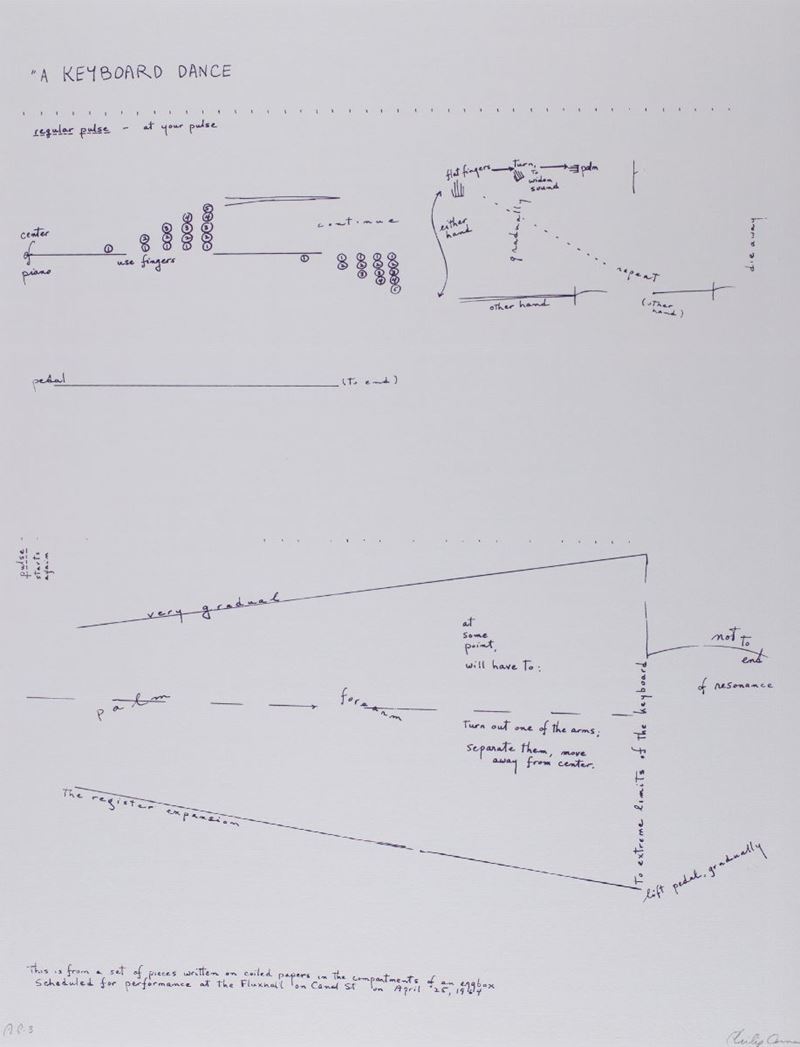 "A KEYBOARD DANCE
regular pulse - at your pulse
flat fingers
Turn,
To
widen
sound
palm
center
of
piano
①
① ②
① ② ③
① ② ③ ④
① ② ③ ④ ⑤
use fingers
continue
①
① ②
① ② ③
① ② ③ ④
① ② ③ ④ ⑤
either
hand
gradually
repeat
die away
other hand
(other
hand)
pedal
(to end)
pulse
starts
again
very gradual
at
some
point,
will have to:
not to
end
of resonance
palm
forearm
Turn out one of the arms;
separate them, move
away from center.
To extreme limits of the keyboard
The register expansion
lift pedal, gradually
This is from a set of pieces written on coiled papers in the compartments of an eggbox
Scheduled for performance at the Fluxhall on Canal St on April 25, 1964
A.P. 3
Philip